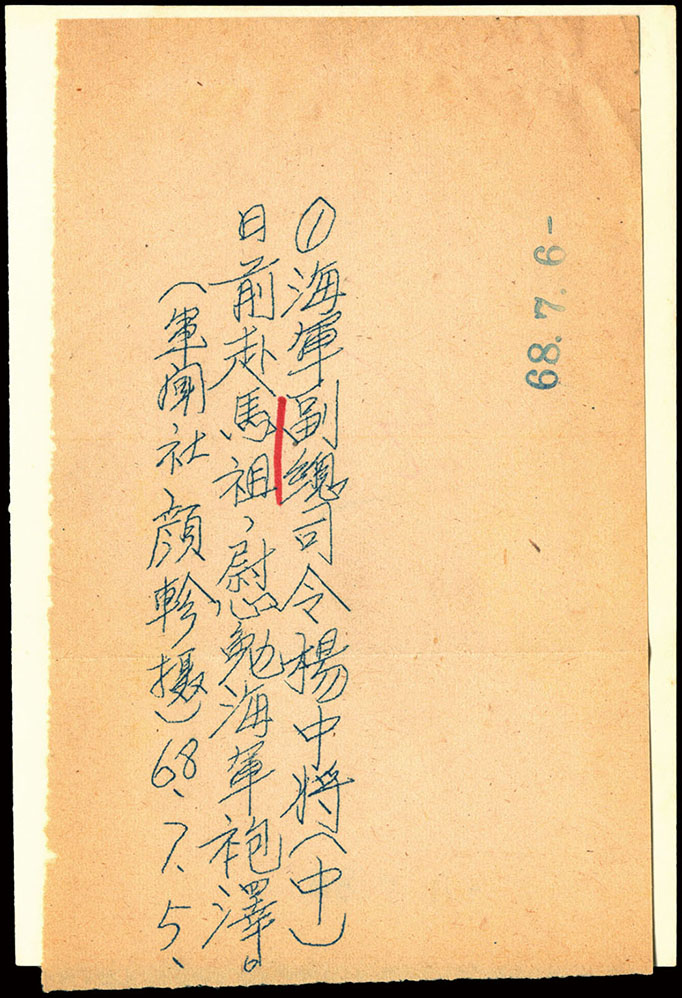 68.7.6-
①海軍副總司令楊中將(中)
日前赴馬祖、慰勉海軍袍澤。
(軍聞社、顏軫攝)68、7、5、